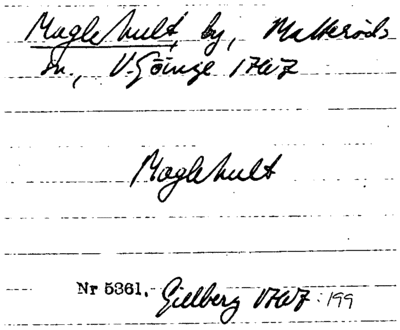 Maglehult, by, Matteröds
sn, V. Göinge 1767
Maglehult
Nr 5361. Gillberg 1767:199